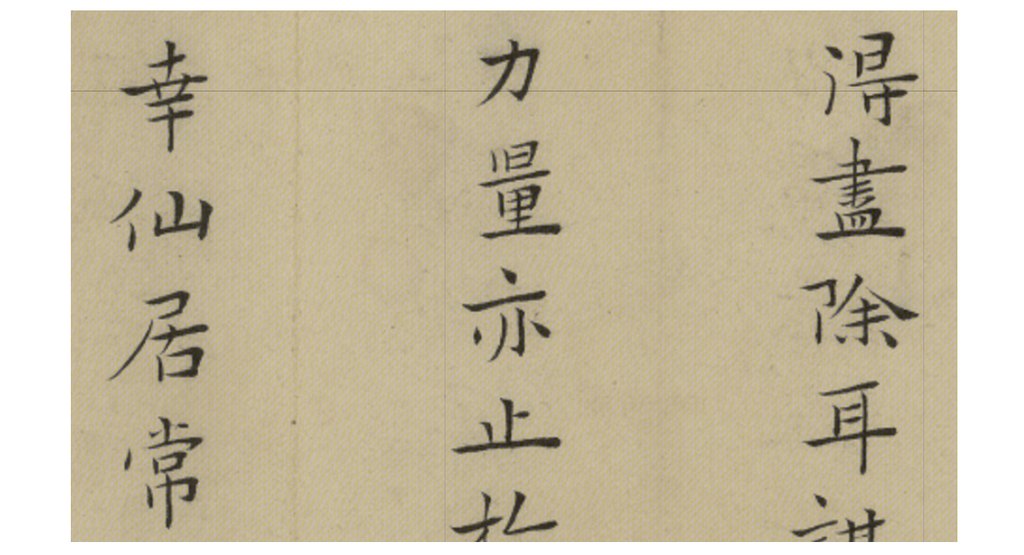 淂盡除耳
力量亦止扵
幸仙居常